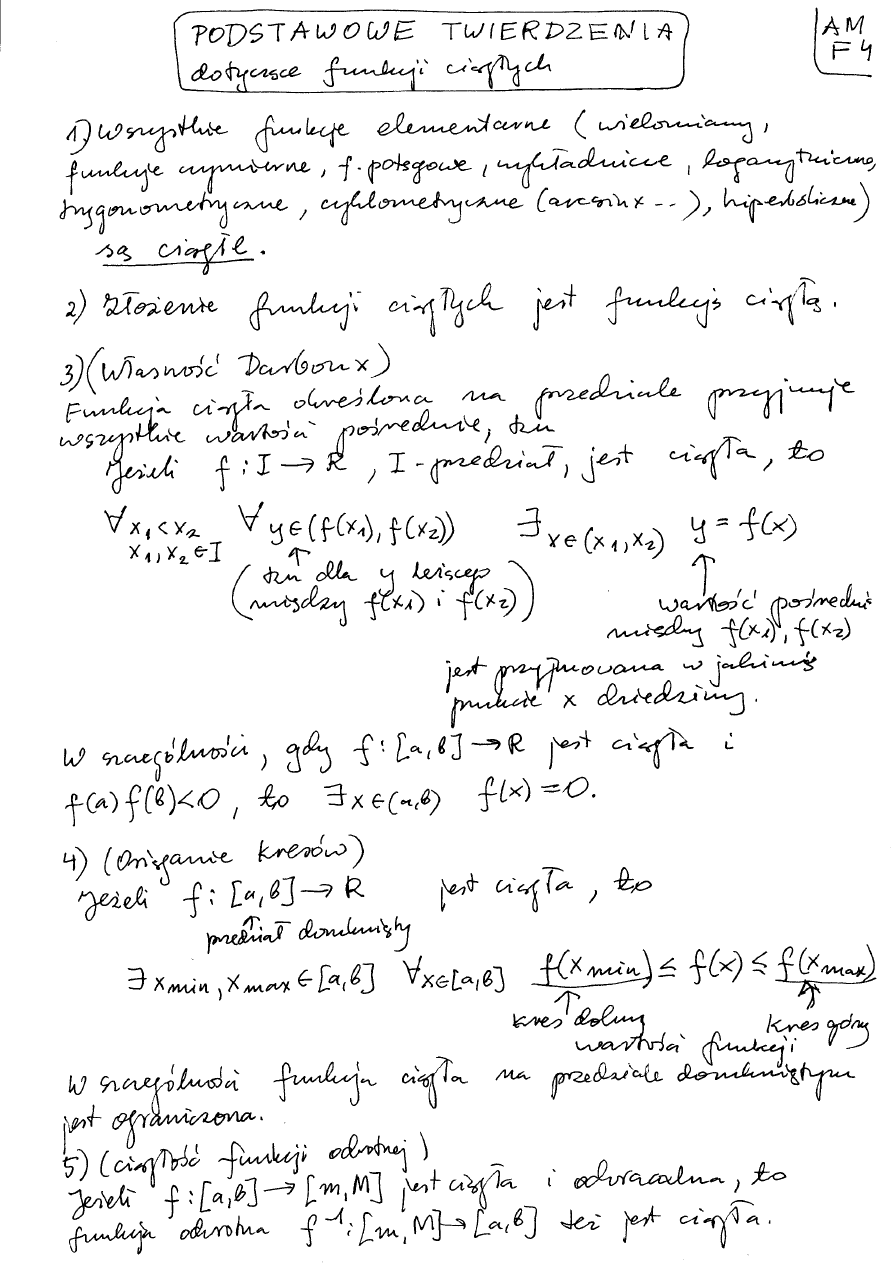 PODSTAWOWE TWIERDZENIA
dotyczące funkcji ciągłych
AM
F4
1) Wszystkie funkcje elementarne (wielomiany,
funkcje wymierne, f. potęgowe, wykładnicze, logarytmiczne,
trygonometryczne, cyklometryczne (arcsinx --), hiperboliczne)
są ciągłe.
2) Złożenie funkcji ciągłych jest funkcją ciągłą.
3) (Własność Darboux)
Funkcja ciągła określona na przedziale przyjmuje
wszystkie wartości pośrednie, tzn
Jeżeli f: I → R, I - przedział, jest ciągła, to
∀ x₁<x₂ ∀ y∈(f(x₁), f(x₂)) ∃ x∈(x₁,x₂) y = f(x)
x₁,x₂∈I
↑ ↑
(tzn dla y leżącego
między f(x₁) i f(x₂))
wartość pośrednia
między f(x₁), f(x₂)
jest przyjmowana w jakimś
punkcie x dziedziny.
W szczególności, gdy f: [a,b] → R jest ciągła i
f(a) f(b)<0, to ∃ x∈(a,b) f(x) = 0.
4) (Osiąganie kresów)
Jeżeli f: [a,b] → R jest ciągła, to
↑
przedział domknięty
∃ xmin, xmax ∈ [a,b] ∀ x∈[a,b] f(xmin) ≤ f(x) ≤ f(xmax)
↑ ↑
kres dolny kres górny
wartości funkcji
W szczególności funkcja ciągła na przedziale domkniętym
jest ograniczona.
5) (ciągłość funkcji odwrotnej)
Jeżeli f: [a,b] → [m,M] jest ciągła i odwracalna, to
funkcja odwrotna f⁻¹: [m,M] → [a,b] też jest ciągła.